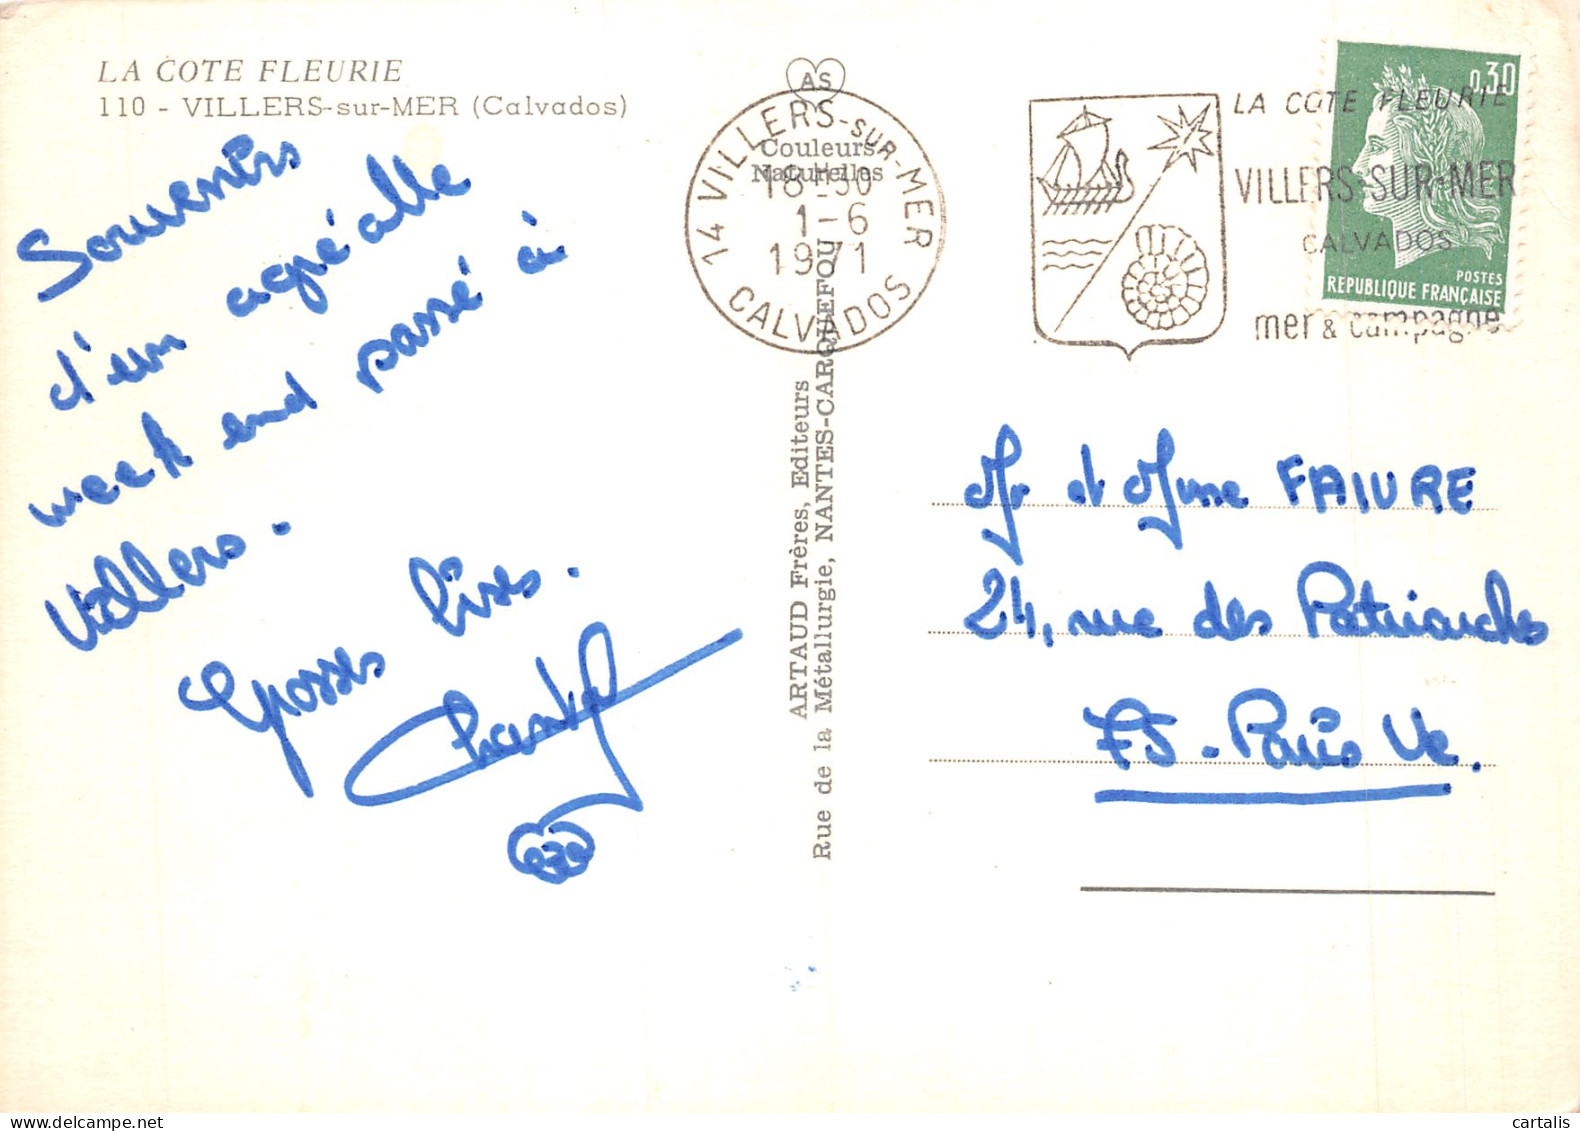 LA COTE FLEURIE
110 - VILLERS-sur-MER (Calvados)
Souvenirs
d'un agréable
week end passé à
Villers.
Grosses bises.
Chantal
AS
Couleurs
Naturelles
14 VILLERS-SUR-MER
18H30
1-6
1971
CALVADOS
ARTAUD Frères, Editeurs
Rue de la Métallurgie, NANTES-CARQUEFOU
LA COTE FLEURIE
VILLERS-SUR-MER
CALVADOS
mer & campagne
0,30
POSTES
REPUBLIQUE FRANÇAISE
Mr et Mme FAIVRE
24, rue des Patriarches
75 - Paris Ve.
cartalis